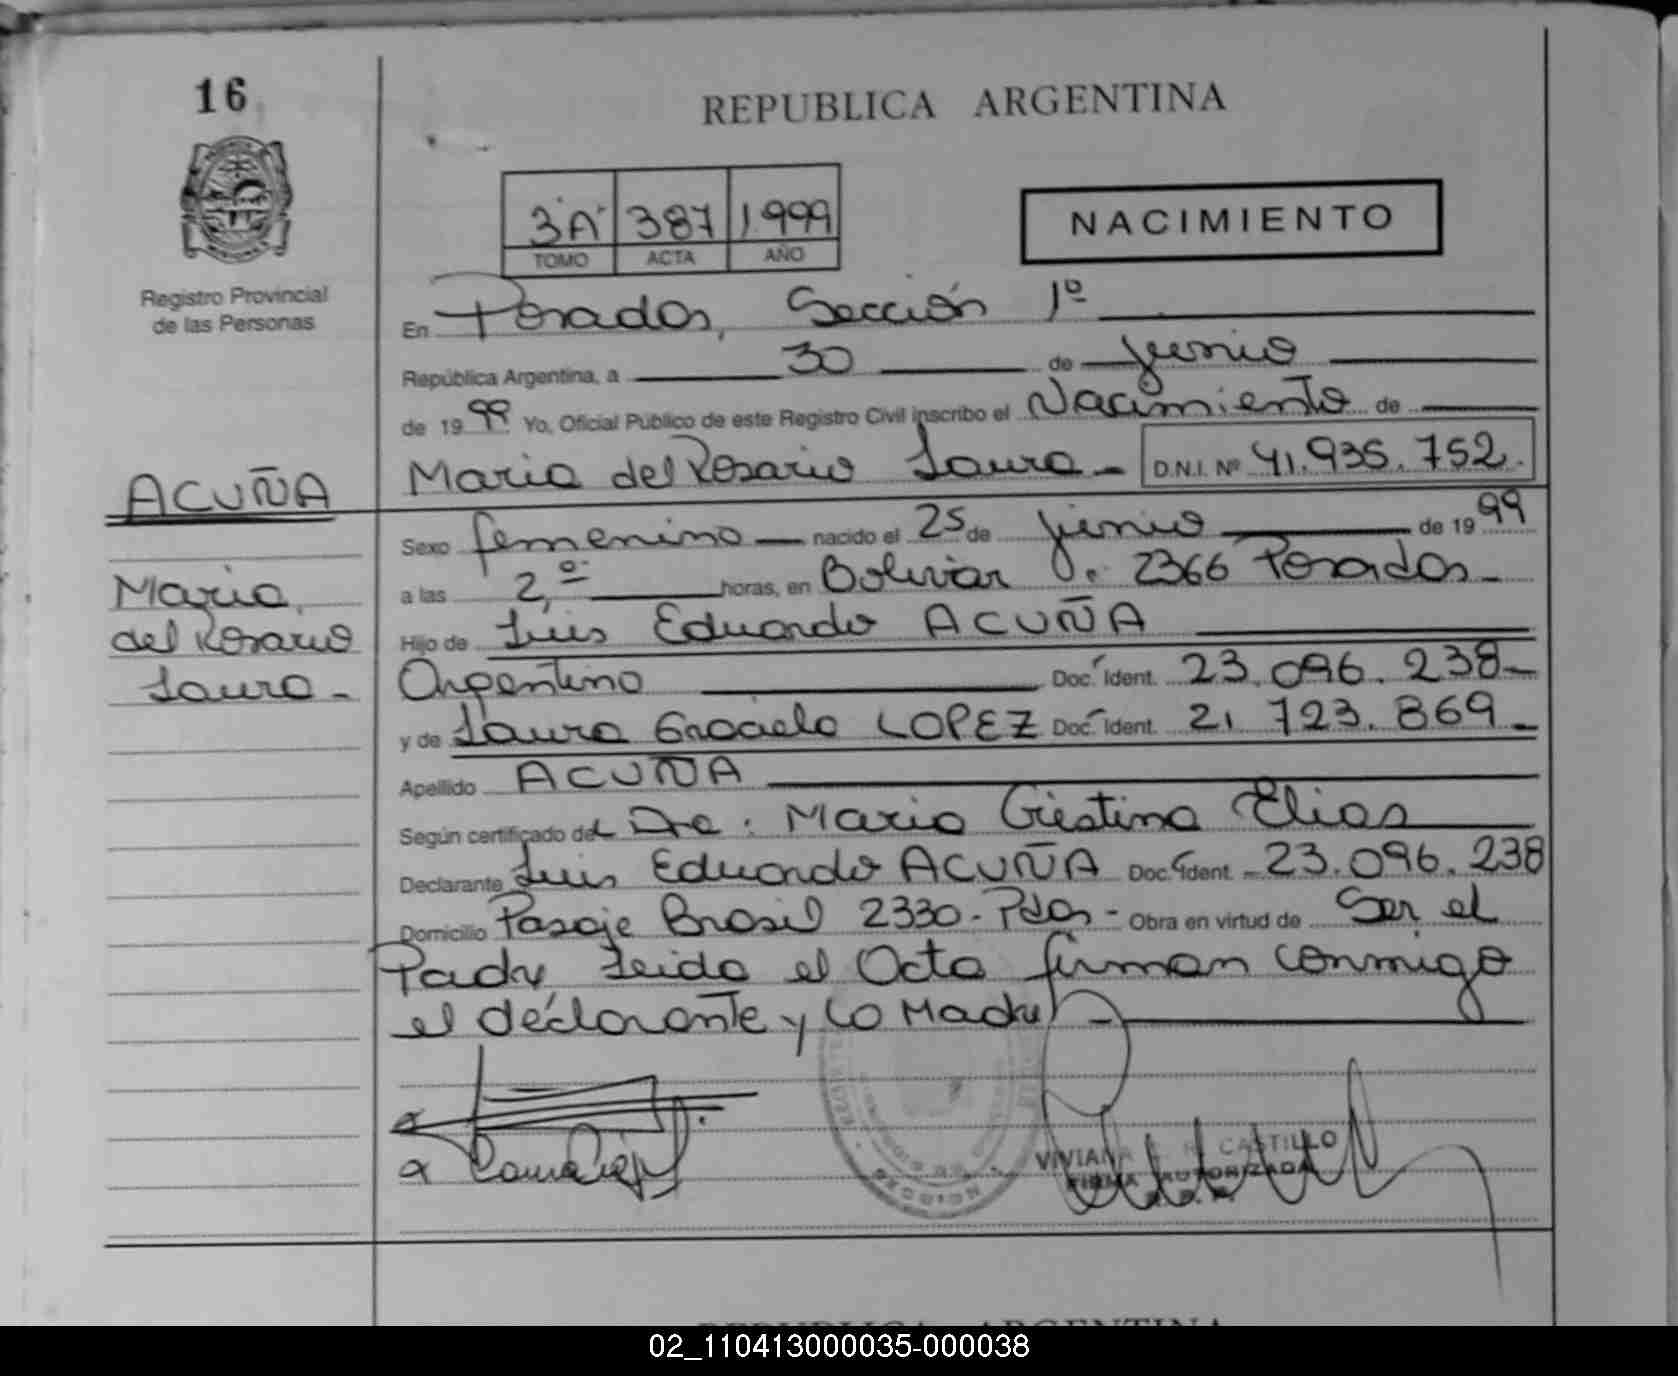 16
REPUBLICA ARGENTINA
3ºA 387 1.999
TOMO ACTA AÑO
NACIMIENTO
Registro Provincial
de las Personas
En Posadas, Sección 1º
República Argentina, a 30 de junio
de 1999 Yo, Oficial Público de este Registro Civil inscribo el Nacimiento de
Maria del Rosario Laura - D.N.I. Nº 41.935.752.
ACUÑA
Sexo femenino nacido el 25 de junio de 1999
a las 2,º horas, en Bolivar 2366 Posadas -
Maria
del Rosario
Laura -
Hijo de Luis Eduardo ACUÑA
Argentino Doc. Ident. 23.096.238-
y de Laura Graciela LOPEZ Doc. Ident. 21.723.869 -
Apellido ACUÑA
Según certificado del Dra. Maria Cristina Elias
Declarante Luis Eduardo ACUÑA Doc. Ident. 23.096.238
Domicilio Pasaje Brasil 2330 - Pdas - Obra en virtud de Ser el
Padre Leida el Acta firman conmigo
el declarante y la Madre -
VIVIANA CASTILLO
FIRMA AUTORIZADA
REPUBLICA ARGENTINA
02_110413000035-000038